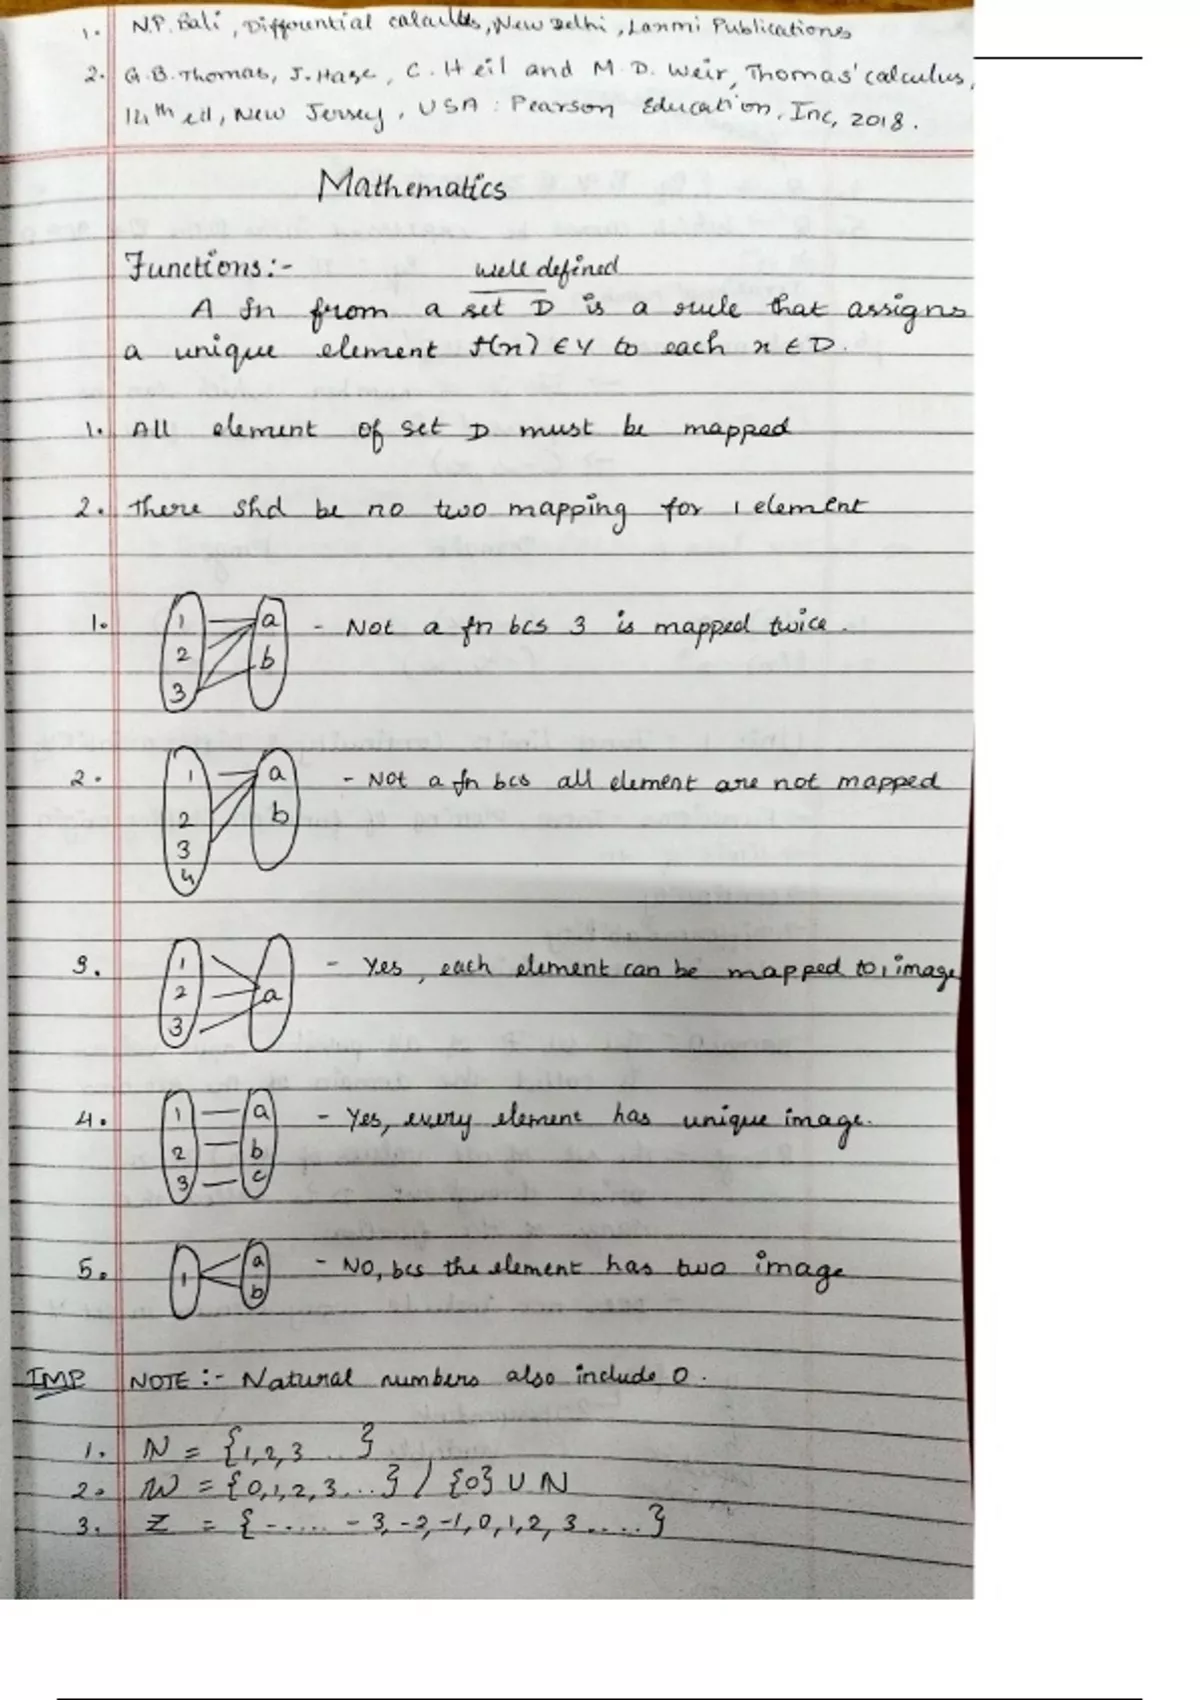 1. N.P. Bali, Differential calculus, New Delhi, Laxmi Publications
2. G.B. Thomas, J. Hase, C. Heil and M.D. Weir, Thomas' calculus,
14th ed, New Jersey, USA: Pearson Education, Inc, 2018.
Mathematics
Functions:- well defined
A fn from a set D is a rule that assigns
a unique element f(x) ∈ Y to each x ∈ D.
1. All element of set D must be mapped
2. there shd be no two mapping for 1 element
1. 1 2 3 a b - Not a fn bcs 3 is mapped twice.
2. 1 2 3 4 a b - Not a fn bcs all element are not mapped
3. 1 2 3 a - Yes, each element can be mapped to 1 image
4. 1 2 3 a b c - Yes, every element has unique image.
5. 1 a b - NO, bcs the element has two image
IMP NOTE:- Natural numbers also include 0.
1. N = {1,2,3 ...}
2. W = {0,1,2,3...} / {0} ∪ N
3. Z = {-.... -3,-2,-1,0,1,2,3.....}